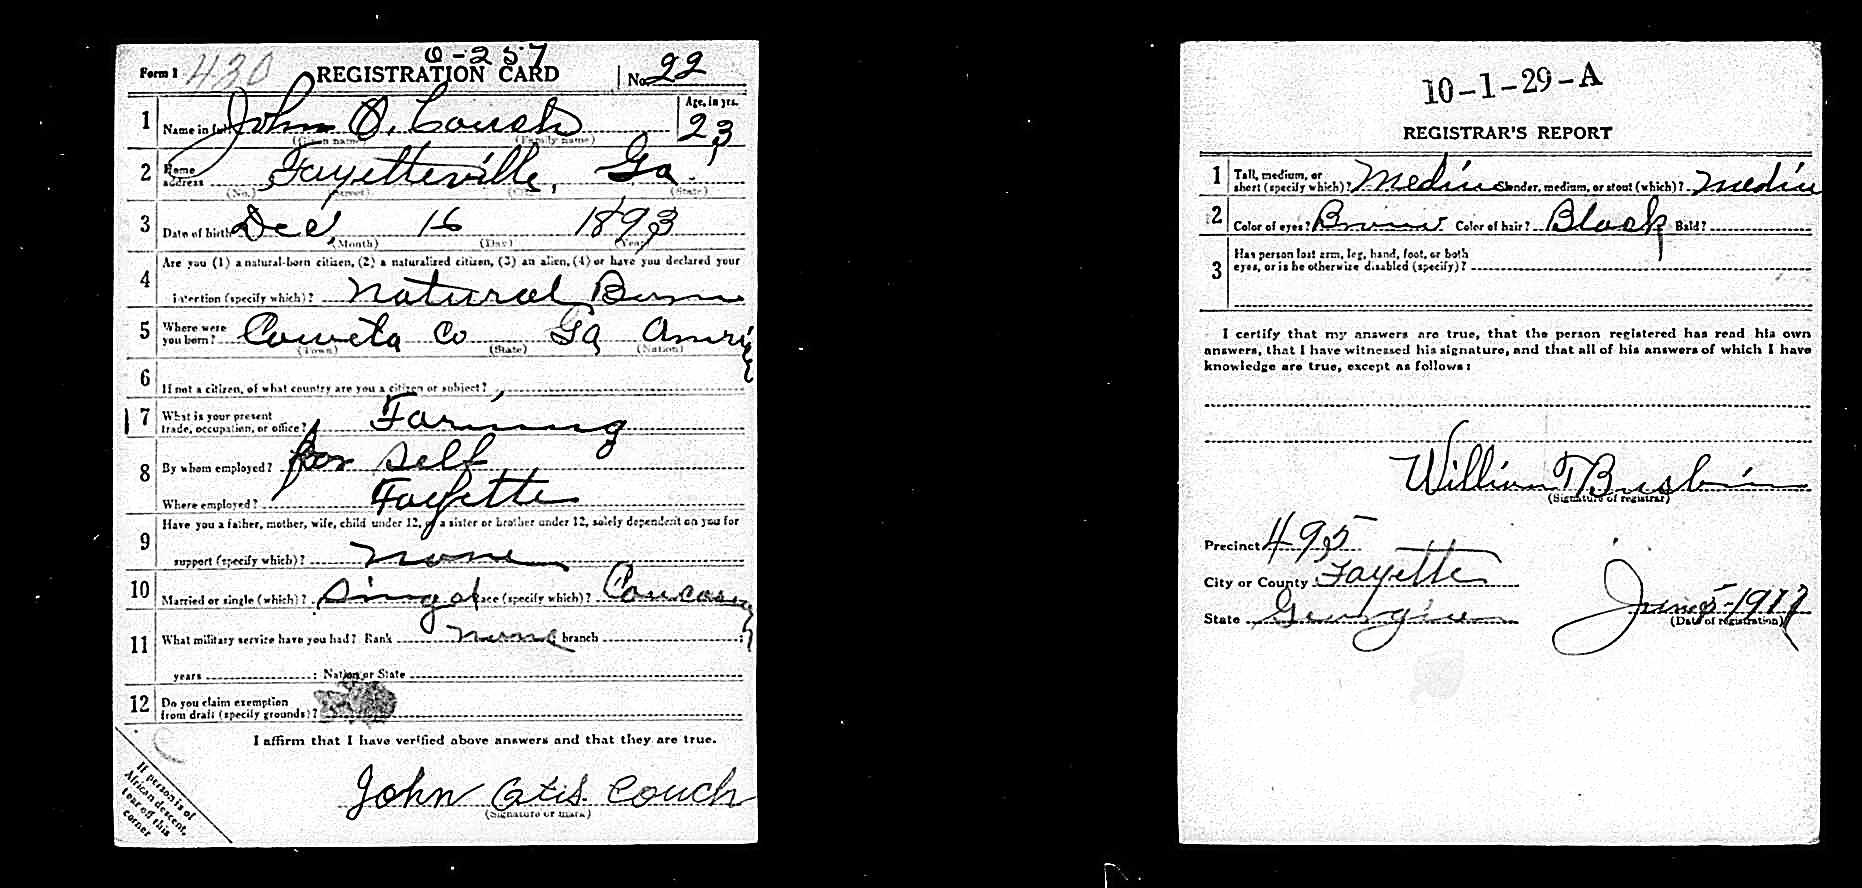 0-257
Form 1 430 REGISTRATION CARD No. 22
1 Name in full John O. Couch Age, in yrs. 23
(Given name) (Family name)
2 Home address Fayetteville, Ga.
(No.) (Street) (City) (State)
3 Date of birth Dec. 16 1893
(Month) (Day) (Year)
4 Are you (1) a natural-born citizen, (2) a naturalized citizen, (3) an alien, (4) or have you declared your
intention (specify which)? Natural Born
5 Where were you born? Coweta Co Ga America
(Town) (State) (Nation)
6 If not a citizen, of what country are you a citizen or subject?
7 What is your present trade, occupation, or office? Farming
8 By whom employed? for self
Where employed? Fayette
9 Have you a father, mother, wife, child under 12, or a sister or brother under 12, solely dependent on you for
support (specify which)? none
10 Married or single (which)? Singel Race (specify which)?
11 What military service have you had? Rank none branch
years : Nation or State
12 Do you claim exemption from draft (specify grounds)?
I affirm that I have verified above answers and that they are true.
John Otis Couch
(Signature or mark)
If person is of
African descent,
tear off this
corner
10-1-29-A
REGISTRAR'S REPORT
1 Tall, medium, or short (specify which)? Medium Slender, medium, or stout (which)? Medium
2 Color of eyes? Brown Color of hair? Black Bald?
3 Has person lost arm, leg, hand, foot, or both
eyes, or is he otherwise disabled (specify)?
I certify that my answers are true, that the person registered has read his own
answers, that I have witnessed his signature, and that all of his answers of which I have
knowledge are true, except as follows:
William T Busbin
(Signature of registrar)
Precinct 495
City or County Fayette
State Georgia June 5-1917
(Date of registration)